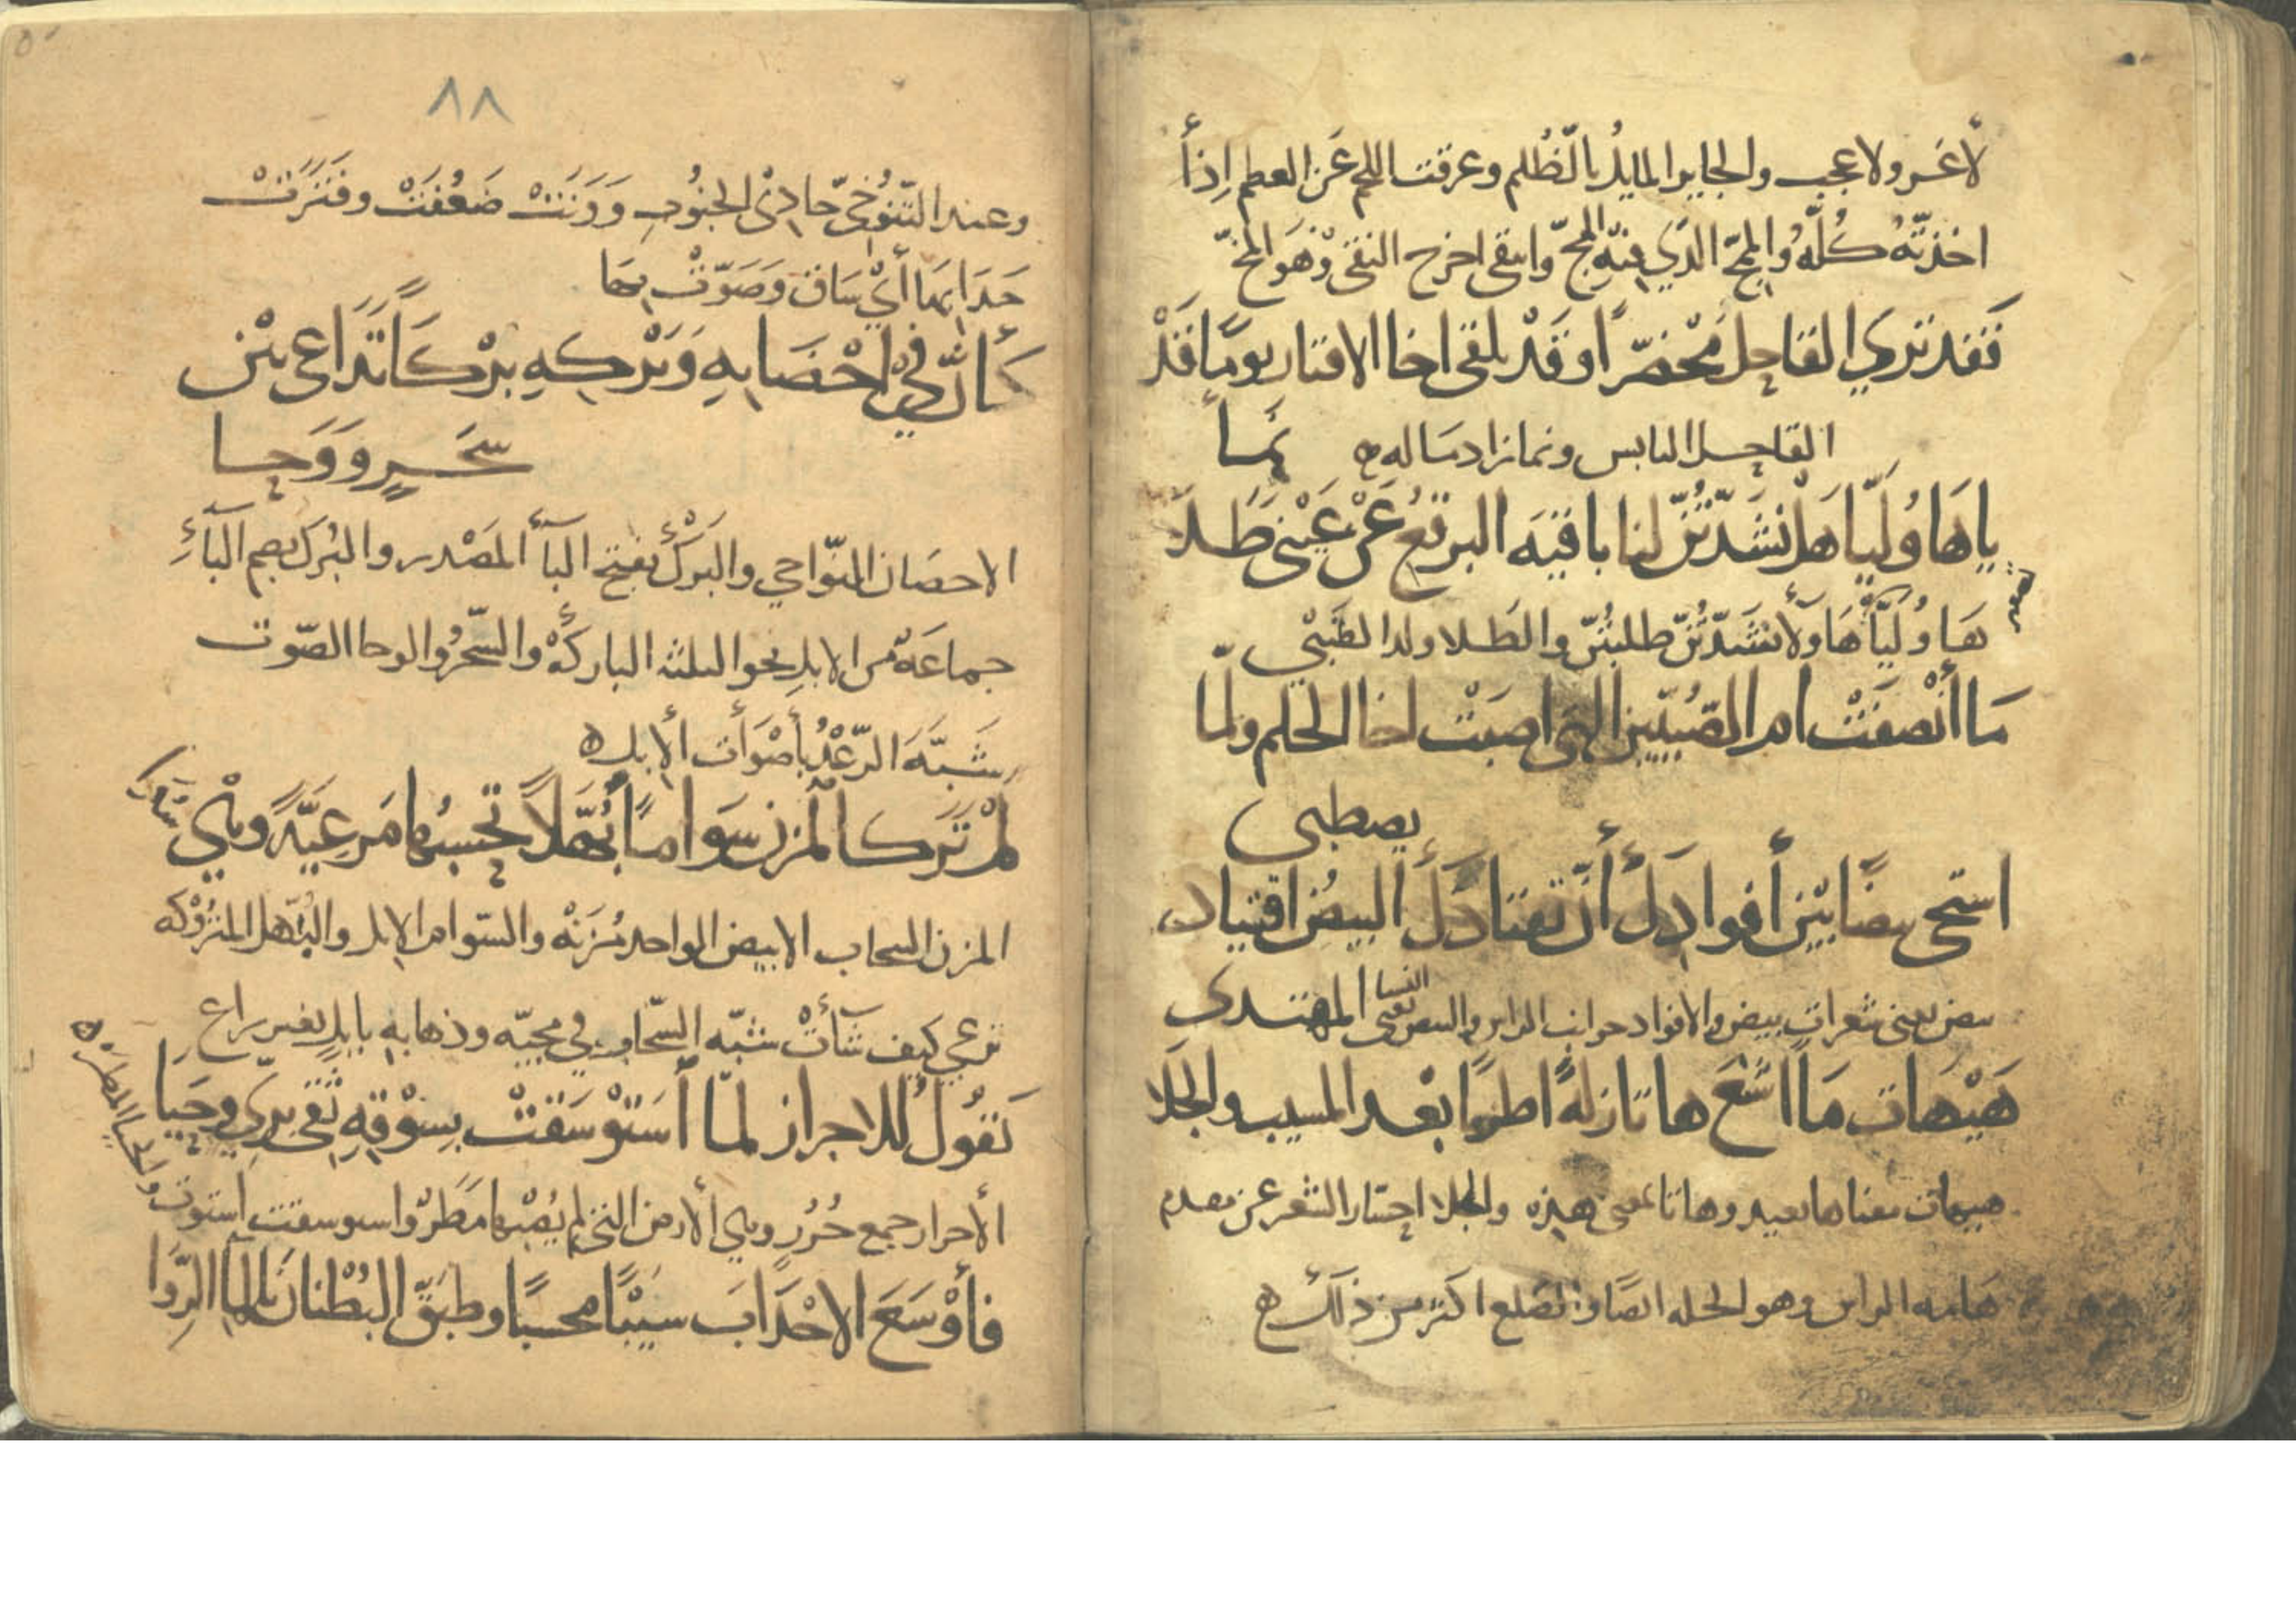 لا غرو ولا عجب والجاير المايل بالظلم وعرقت اللحم عن العظم إذا
اخذته كله والمخ الذي فيه المخ وانتقى اخرج النقى وهو المخ
فقد ترى القاحل مخضرا وقد يلقى اخا الاقتار يوما قد
نما
القاحل اليابس ونما زاد ماله
يا هاوليا هل نشدتن لنا ثاقبة البرقع عن عيني طلا
هاوليا هاولا نشدتن طلبتن والطلا ولد الظبي
ما أنصفت ام الصبيين التي اصبت اخا الحلم ولما
يصطبى
استحى بيضا بين أفوادك أن تقتادك البيض اقتياد
المهتدى
بيض يعني شعرات بيض والافواد جوانب الراس والبيض يعني النسا
هيهات ما اشنع هاتا زلة اطربا بعد المشيب والجلا
هيهات معناها بعيد وهاتا بمعنى هذه والجلا انحسار الشعر عن مقدم
هامه الراس وهو الجله ايضا والصلع اكثر من ذلك
٨٨
وعند التنوخي حادي الجنوب وونت ضعفت وفترت
حدا بها أي ساق وصوت بها
كأن في احضانه وبركه بركا تداعى بين
سحر ووحا
الاحضان النواحي والبرك بفتح البا المصدر والبرك بضم البا
جماعة من الابل نحو الثلثه الباركة والسحر والوحا الصوت
شبه الرعد بأصوات الابل
لم تر كالمزن سواما بهلا تحسبها مرعية وهي
المزن السحاب الابيض الواحد مزنة والسوام الابل والبهل المتروكه
ترعى كيف شأت شبه السحاب في مجيه وذهابه بابل بغير راع
تقول للاجراز لما استوسقت بسوقه ثقي بري وحيا
الأجراز جمع جرز وهي الأرض التي لم يصبها مطر واستوسقت استوت
والحيا المطر
فأوسع الاحداب سيبا محسبا وطبق البطنان بالما الروا